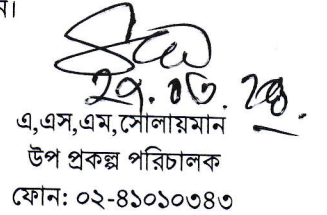 ন।
২৭.০৩.২৪
এ,এস,এম,সোলায়মান
উপ প্রকল্প পরিচালক
ফোন: ০২-৪১০১০৩৪৩